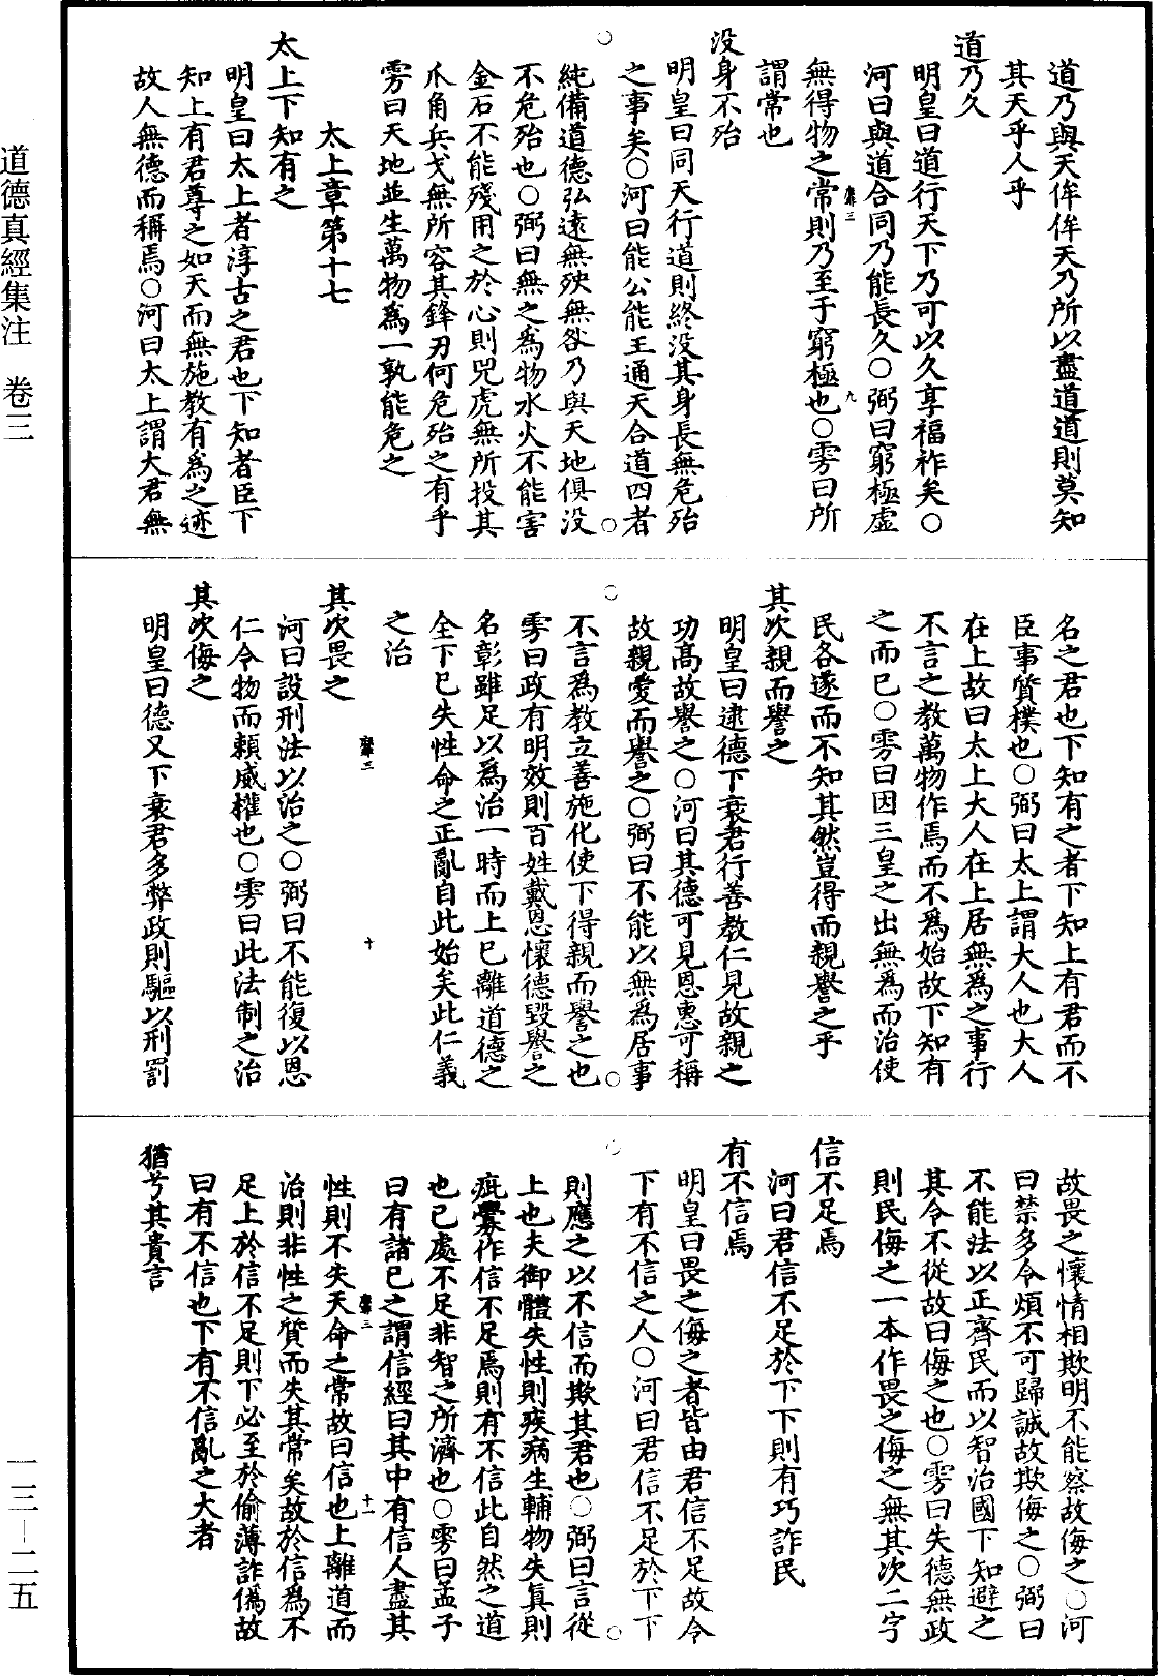 道乃與天侔侔天乃所以盡道道則莫知
其天乎人乎
道乃久
明皇曰道行天下乃可以久享福祚矣○
河曰與道合同乃能長久○弼曰窮極虛
無得物之常則乃至于窮極也○雱曰所
謂常也
没身不殆
明皇曰同天行道則終没其身長無危殆
之事矣○河曰能公能王通天合道四者
純備道德弘遠無殃無咎乃與天地俱没
不危殆也○弼曰無之為物水火不能害
金石不能殘用之於心則兕虎無所投其
爪角兵戈無所容其鋒刃何危殆之有乎
雱曰天地並生萬物為一孰能危之
太上章第十七
太上下知有之
明皇曰太上者淳古之君也下知者臣下
知上有君尊之如天而無施教有為之迹
故人無德而稱焉○河曰太上謂大君無
名之君也下知有之者下知上有君而不
臣事質樸也○弼曰太上謂大人也大人
在上故曰太上大人在上居無為之事行
不言之教萬物作焉而不為始故下知有
之而已○雱曰因三皇之出無為而治使
民各遂而不知其然豈得而親譽之乎
其次親而譽之
明皇曰逮德下衰君行善教仁見故親之
功高故譽之○河曰其德可見恩惠可稱
故親愛而譽之○弼曰不能以無為居事
不言為教立善施化使下得親而譽之也
雱曰政有明效則百姓戴恩懷德毀譽之
名彰雖足以為治一時而上已離道德之
全下已失性命之正亂自此始矣此仁義
之治
其次畏之
河曰設刑法以治之○弼曰不能復以恩
仁令物而賴威權也○雱曰此法制之治
其次侮之
明皇曰德又下衰君多弊政則驅以刑罰
故畏之懷情相欺明不能察故侮之○河
曰禁多令煩不可歸誠故欺侮之○弼曰
不能法以正齊民而以智治國下知避之
其令不從故曰侮之也○雱曰失德無政
則民侮之一本作畏之侮之無其次二字
信不足焉
河曰君信不足於下下則有巧詐民
有不信焉
明皇曰畏之侮之者皆由君信不足故令
下有不信之人○河曰君信不足於下下
則應之以不信而欺其君也○弼曰言從
上也夫御體失性則疾病生輔物失真則
疵釁作信不足焉則有不信此自然之道
也已處不足非智之所濟也○雱曰孟子
曰有諸己之謂信經曰其中有信人盡其
性則不失天命之常故曰信也上離道而
治則非性之質而失其常矣故於信為不
足上於信不足則下必至於偷薄詐偽故
曰有不信也下有不信亂之大者
猶兮其貴言
道德真經集注　卷三
一三－二五